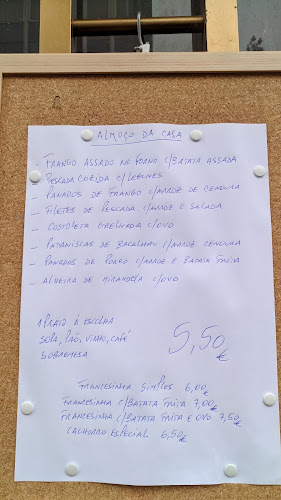 ALMOÇO DA CASA
- FRANGO ASSADO NO FORNO C/BATATA ASSADA
- PESCADA COZIDA C/LEGUMES
- PANADOS DE FRANGO C/ARROZ DE CENOURA
- FILETES DE PESCADA C/ARROZ E SALADA
- COSTOLETA GRELHADA C/OVO
- PATANISCAS DE BACALHAU C/ARROZ CENOURA
- PANADOS DE PORCO C/ARROZ E BATATA FRITA
- ALHEIRA DE MIRANDELA C/OVO
1 PRATO À ESCOLHA
SOPA, PÃO, VINHO, CAFÉ
SOBREMESA
5,50€
FRANCESINHA SIMPLES 6,00€
FRANCESINHA C/BATATA FRITA 7,00€
FRANCESINHA C/BATATA FRITA E OVO 7,50€
CACHORRO ESPECIAL 6,50€